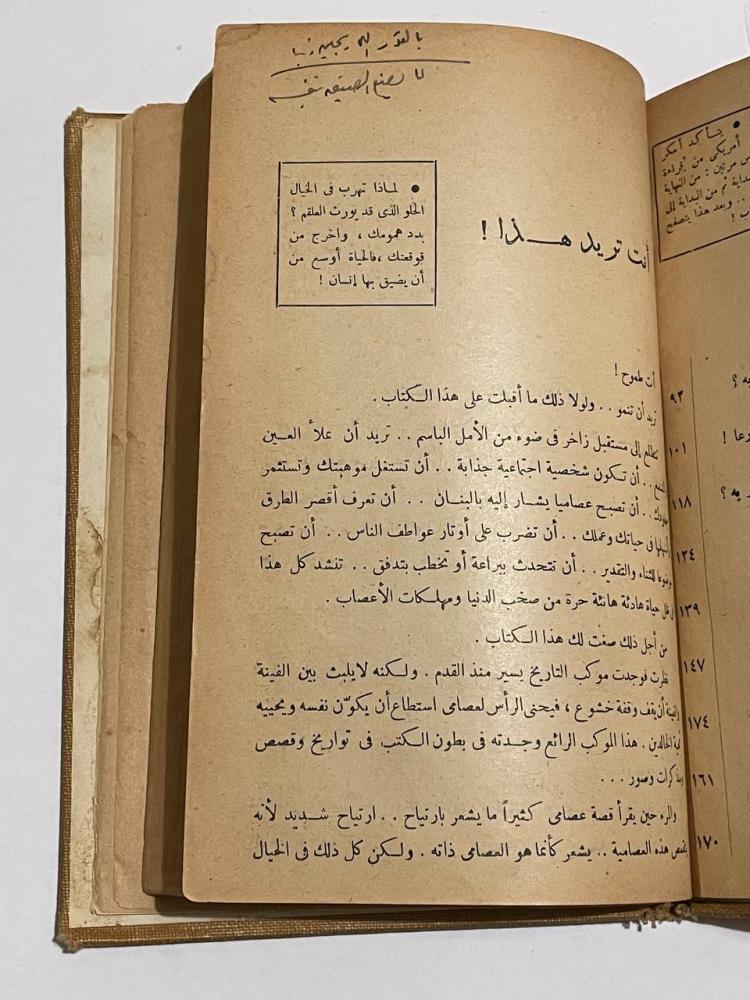 لا يصنع
● لماذا تهرب فى الخيال
الحلو الذى قد يورث العلقم ؟
بدد همومك ، واخرج من
قوقعتك ،فالحياة أوسع من
أن يضيق بها إنسان !
أنت تريد هــذا !
أنت طموح !
تريد أن تنمو . . ولولا ذلك ما أقبلت على هذا الكتاب .
تتطلع إلى مستقبل زاخر فى ضوء من الأمل الباسم . . تريد أن تملأ العــين
. . أن تـكون شخصية اجتماعية جذابة . . أن تستغل موهبتك وتستثمر
. . أن تصبح عصاميا يشــار إليه بالبنــان . . أن تعرف أقصر الطرق
فى حياتك وعملك . . أن تضرب على أوتار عواطف الناس . . أن تصبح
موضوعا للثناء والتقدير . . أن تتحدث ببراعة أو تخطب بتدفق . . تنشد كل هذا
فى ظل حياة هادئة هانئة حرة من صخب الدنيا ومهلـكات الأعصاب .
من أجل ذلك صغت لك هذا الـكتاب .
نظرت فوجدت موكب التاريخ يسير منذ القدم . ولـكنه لايلبث بين الفينة
والفينة أن يقف وقفة خشوع ، فيحنى الرأس لعصامى استطاع أن يكوّن نفسه ويحييه
تحية الخالدين . هذا الموكب الرائع وجـدته فى بطون الـكتب فى تواريخ وقصص
ومذكرات وصور . . .
والمرء حين يقرأ قصة عصامى كثيراً ما يشعر بارتياح . . ارتياح شــديد لأنه
يتقمص هذه العصامية . . يشعر كأنما هو العصامى ذاته . ولـكن كل ذلك فى الخيال
● يتأكد
أمريكى من قراءة
مرتين : من النهاية
ثم من البداية إلى
. . وبعد هذا يتصفح
٩٣
١٠١
١١٨
١٣٤
١٣٩
١٤٧
١٧٤
١٦١
١٧٠